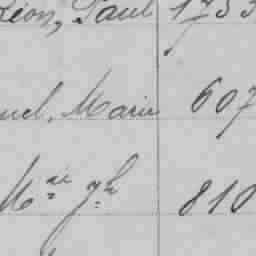 Léon, Paul 1733
uel, Marie 607
Mne Jh 810